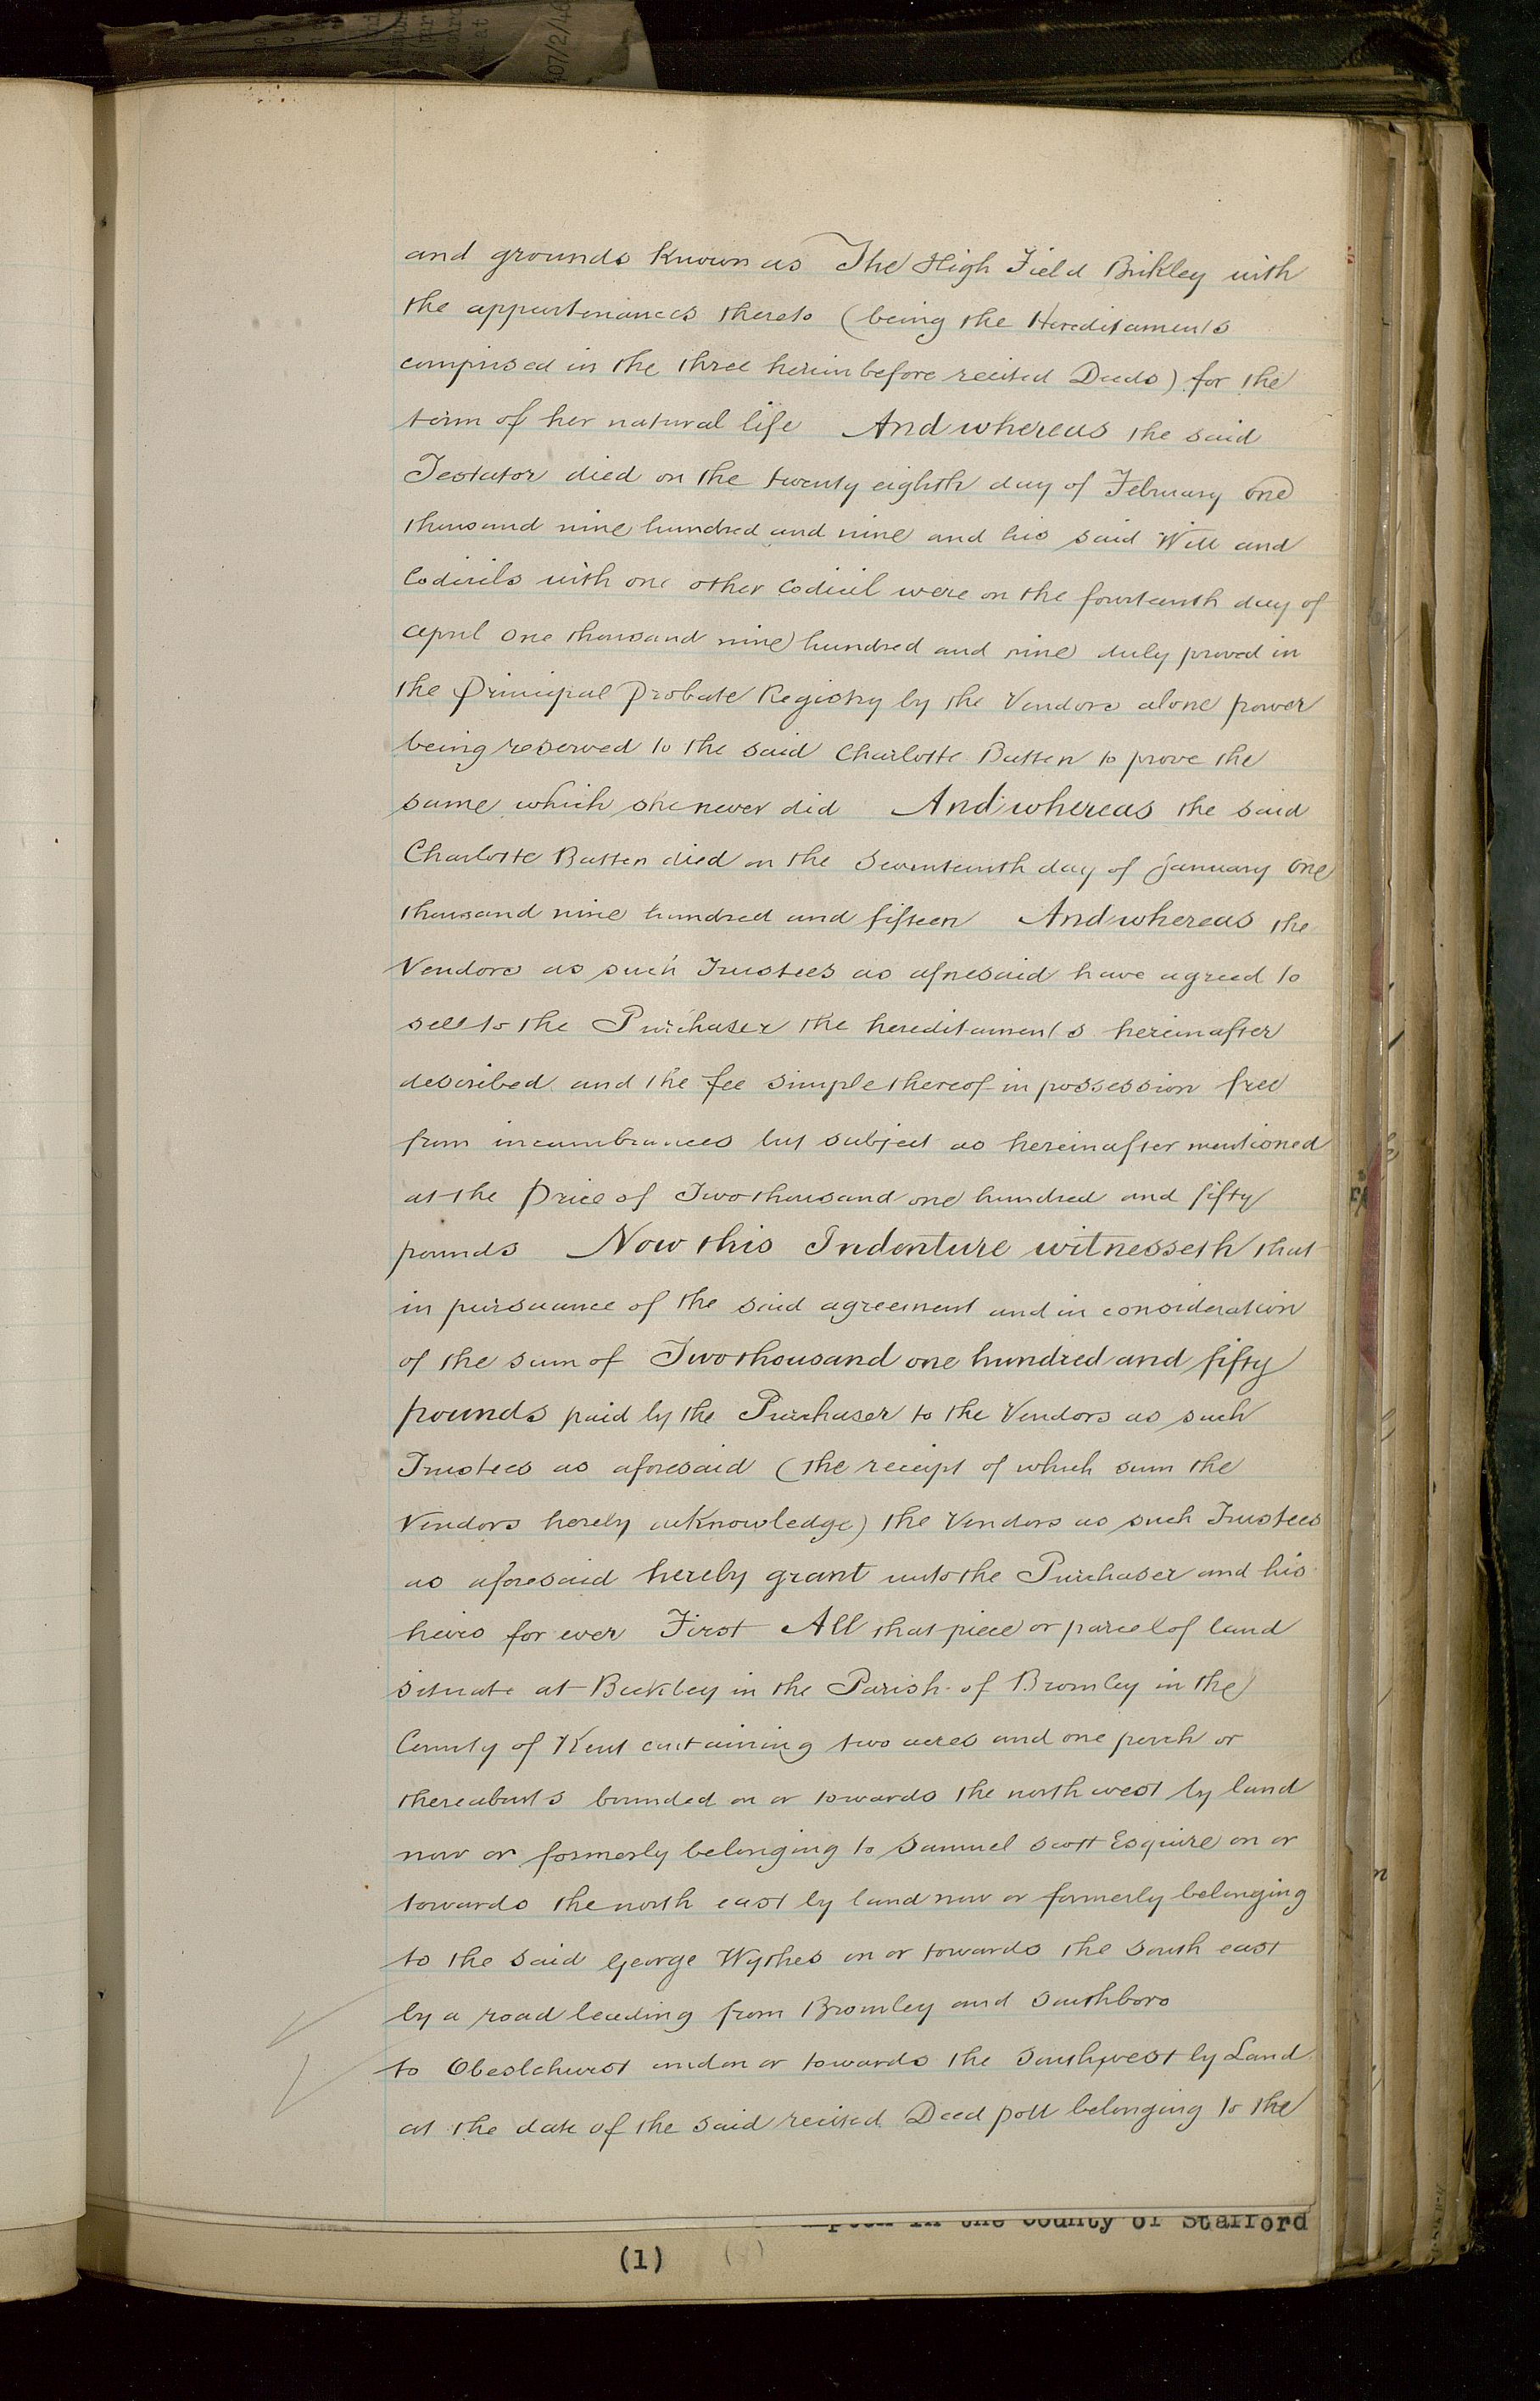 and grounds known as The High Field Bickley with
the appurtenances thereto (being the Hereditaments
comprised in the three hereinbefore recited Deeds) for the
term of her natural life And whereas the said
Testator died on the twenty eighth day of February one
thousand nine hundred and nine and his said Will and
Codicils with one other Codicil were on the fourteenth day of
April one thousand nine hundred and nine duly proved in
the Principal Probate Registry by the Vendors alone power
being reserved to the said Charlotte Batten to prove the
same which she never did And whereas the said
Charlotte Batten died on the seventeenth day of January one
thousand nine hundred and fifteen And whereas the
Vendors as such Trustees as aforesaid have agreed to
sell to the Purchaser the hereditaments hereinafter
described and the fee simple thereof in possession free
from incumbrances but subject as hereinafter mentioned
at the Price of Two thousand one hundred and fifty
pounds Now this Indenture witnesseth that
in pursuance of the said agreement and in consideration
of the sum of Two thousand one hundred and fifty
pounds paid by the Purchaser to the Vendors as such
Trustees as aforesaid (the receipt of which sum the
Vendors hereby acknowledge) the Vendors as such Trustees
as aforesaid hereby grant unto the Purchaser and his
heirs for ever First All that piece or parcel of land
situate at Bickley in the Parish of Bromley in the
County of Kent containing two acres and one perch or
thereabouts bounded on or towards the north west by land
now or formerly belonging to Samuel Scott Esquire on or
towards the north east by land now or formerly belonging
to the said George Wythes on or towards the south east
by a road leading from Bromley and Southboro
to Cheslehurst and on or towards the south west by Land
at the date of the said recited Deed poll belonging to the
in the County of Stafford
(1)